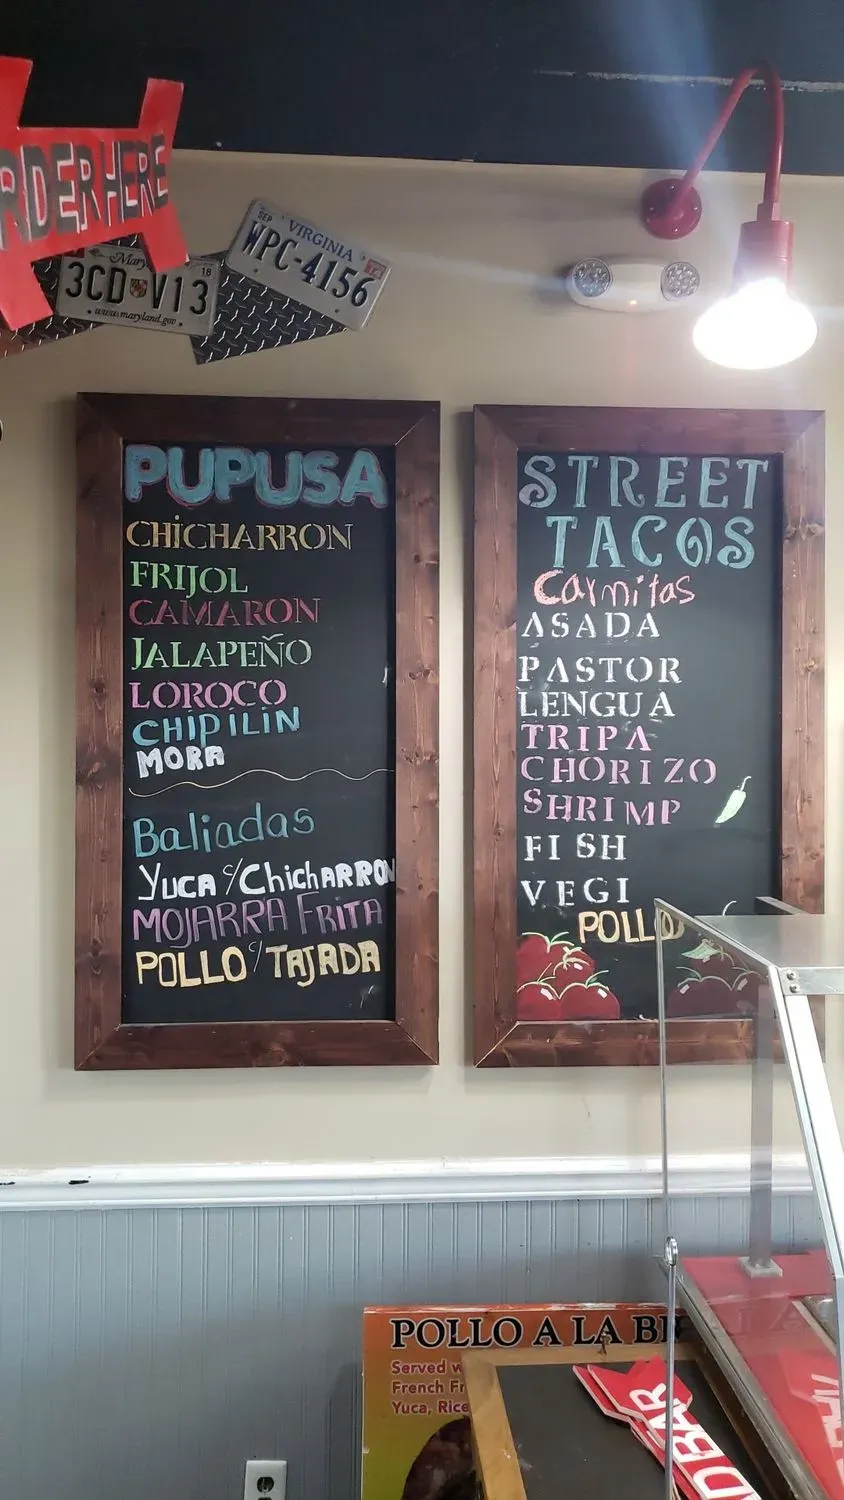 RDER HERE
Mary
18
3CD V13
www.maryland.gov
SEP VIRGINIA
WPC-4156
PUPUSA
CHiCHARRON
FRIJOL
CAMARON
JALAPEÑO
LOROCO
CHIPILIN
MORA
Baliadas
YUCA c/ChichARRON
MOJARRA FRITA
POLLO c/ TAJADA
STREET
TACOS
Carnitas
ASADA
PASTOR
LENGUA
TRIPA
CHORIZO
SHRIMP
FISH
VEGI
POLLO
POLLO A LA BR
Served w
French Fr
Yuca, Rice
D BAR